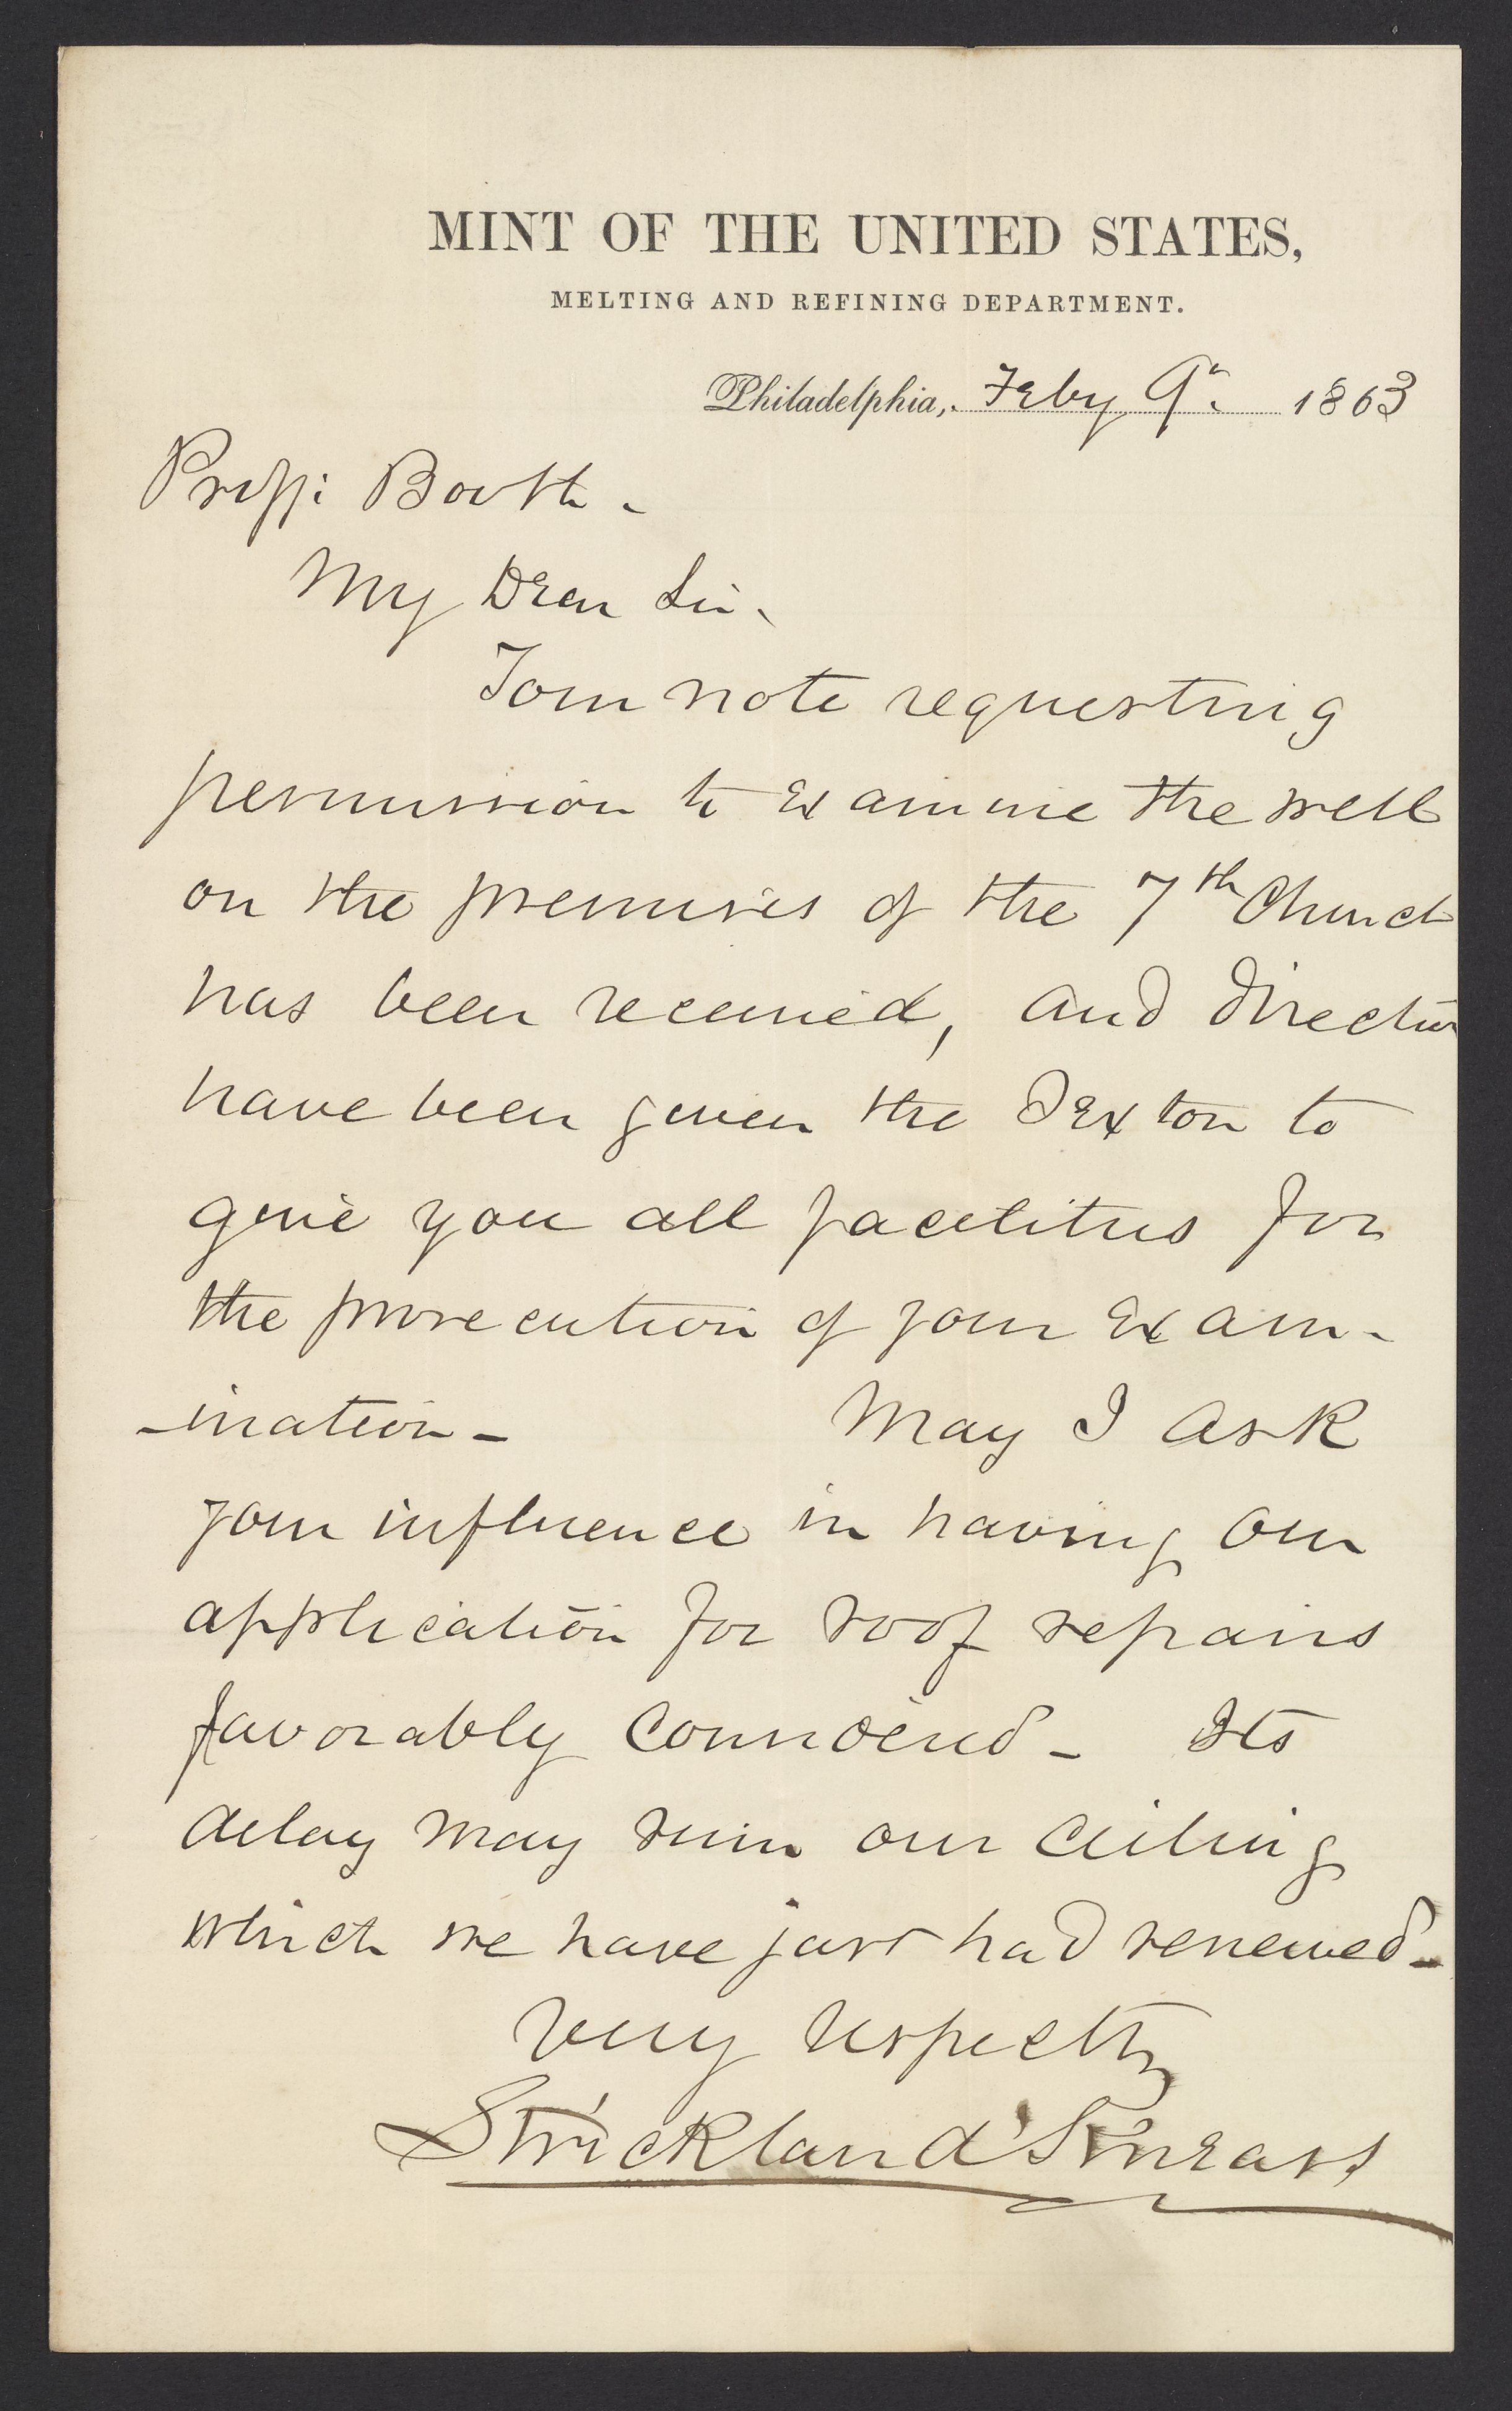 MINT OF THE UNITED STATES,
MELTING AND REFINING DEPARTMENT.
Philadelphia, Feby 9" 1863
Booth -
My Dear Sir,
Your note requesting
permission to Examine the well
on the premises of the 7th Church
has been received, and direction
have been given the Sexton to
give you all facilities for
the prosecution of your Exam-
-ination - May I ask
your influence in having our
application for roof repairs
favorably considered - Its
delay may ruin our ceiling
which we have just had renewed -
Very respectfy
Strickland Kneass